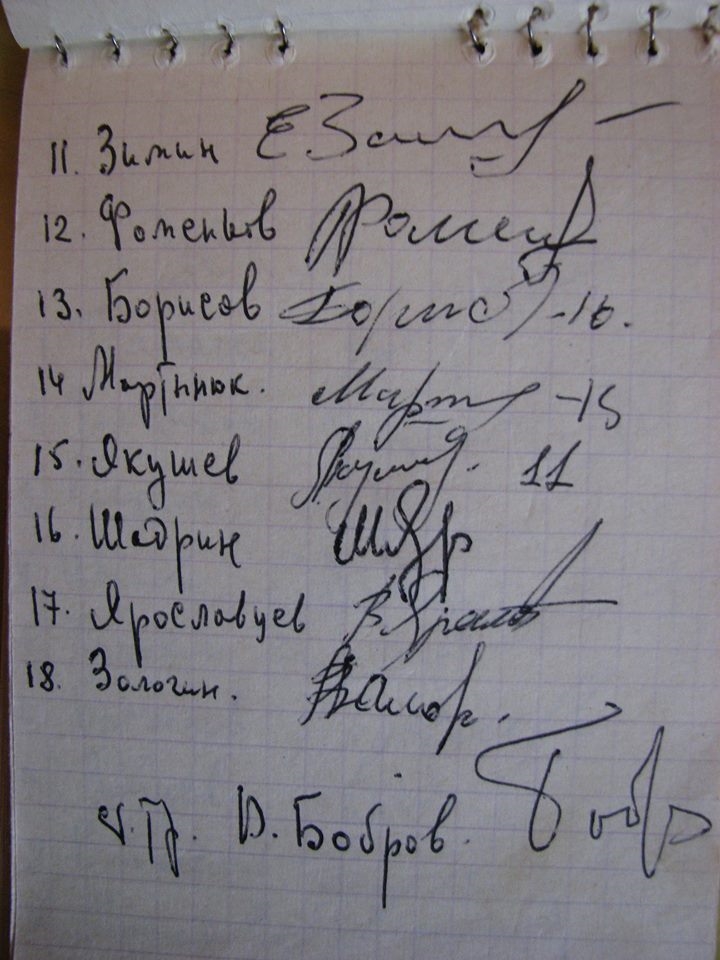 11. Зимин Е Зимин
12. Фоменков Фомен
13. Борисов Борисов -16.
14 Мартынюк. Март -15
15. Якушев Якушев. 11
16. Шадрин Шадр
17. Ярославцев В Яросл
18. Зологин.
В. Бобров. Бобр